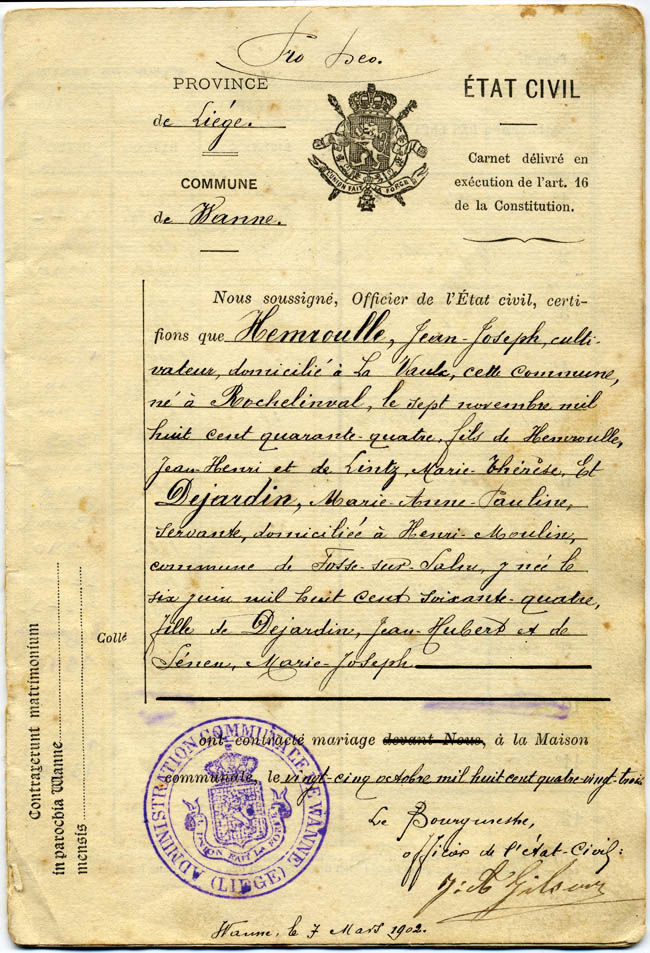 Pro Deo.
PROVINCE
de Liége.
COMMUNE
de Wanne.
L'UNION FAIT LA FORCE
ÉTAT CIVIL
Carnet délivré en
exécution de l'art. 16
de la Constitution.
Nous soussigné, Officier de l'État civil, certi-
fions que Hemroulle, Jean-Joseph, culti-
vateur, domicilié à La Vaulx, cette commune,
né à Rochelinval, le sept novembre mil
huit cent quarante-quatre, fils de Hemroulle,
Jean-Henri et de Lintz, Marie-Thérèse, Et
Dejardin, Marie-Anne-Pauline,
servante, domiciliée à Henri-Moulin,
commune de Fosse-sur-Salm, y née le
six juin mil huit cent soixante-quatre,
fille de Dejardin, Jean-Hubert et de
Marie-Joseph
ont contracté mariage devant Nous, à la Maison
communale, le vingt-cinq octobre mil huit cent quatre-vingt-trois
Le Bourgmestre,
officier de l'état-Civil:
Wanne, le 7 Mars 1902.
ADMINISTRATION COMMUNALE DE WANNE
(LIEGE)
L'UNION FAIT LA FORCE
Collé
Contraxerunt matrimonium
in parochia Wanne
mensis